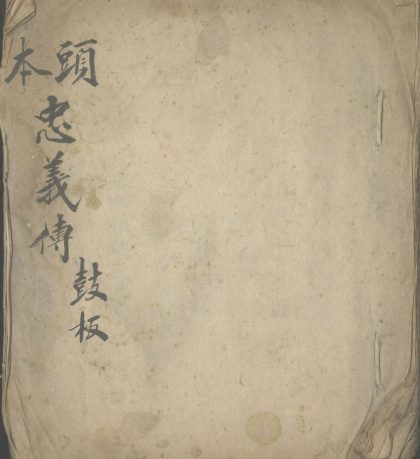 頭本
忠義傳
鼓板